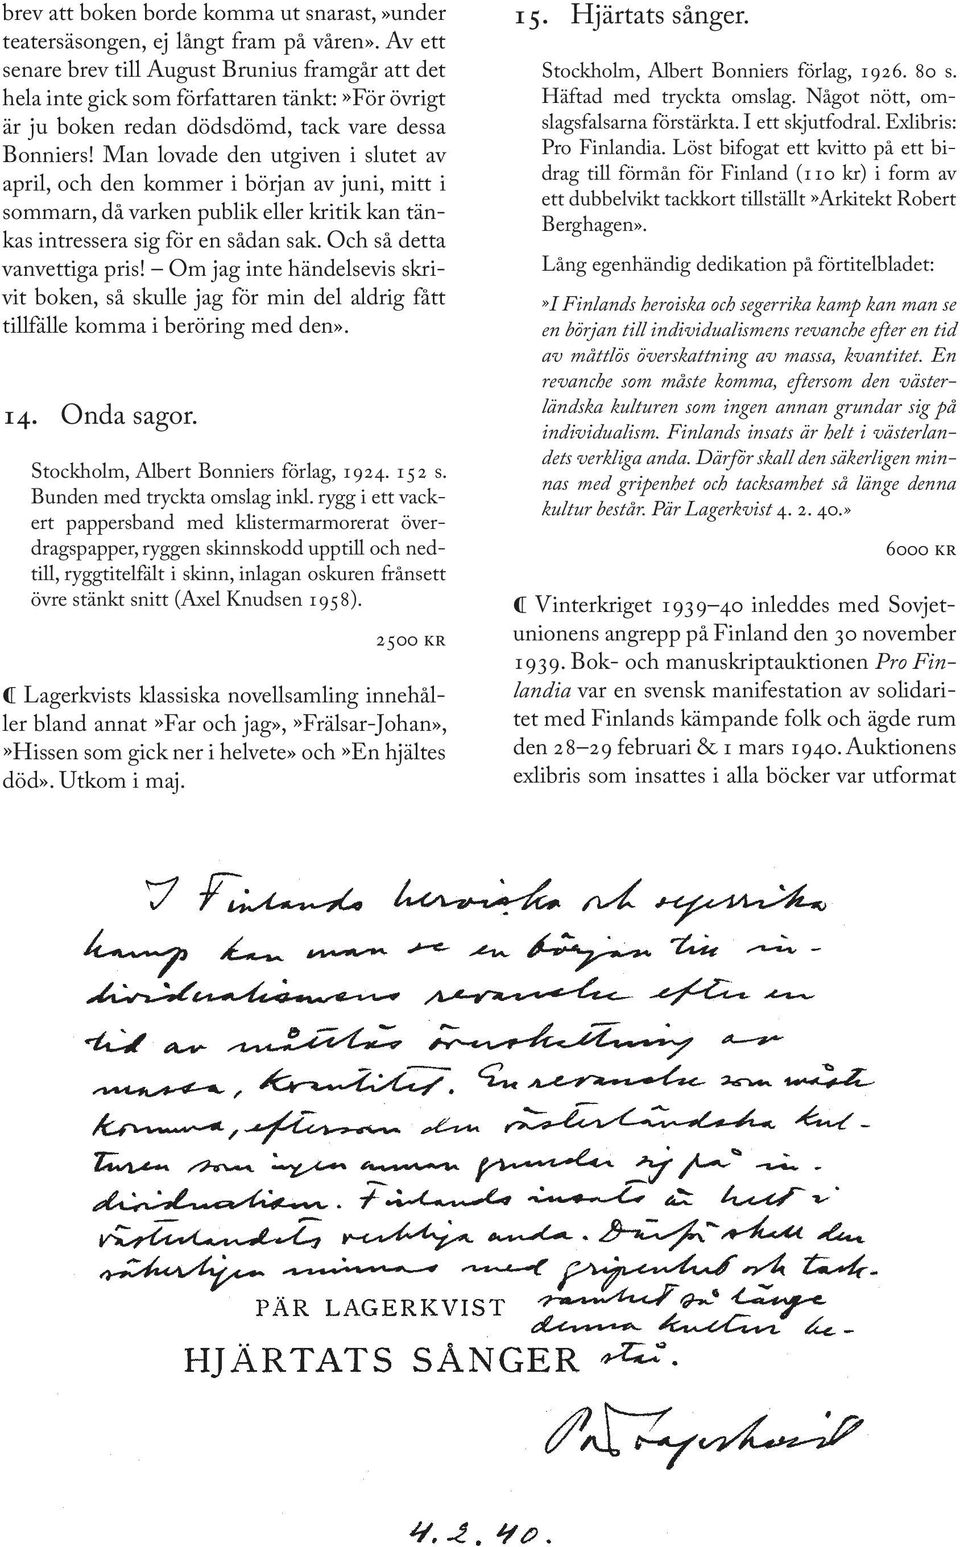 brev att boken borde komma ut snarast, »under
teatersäsongen, ej långt fram på våren». Av ett
senare brev till August Brunius framgår att det
hela inte gick som författaren tänkt: »För övrigt
är ju boken redan dödsdömd, tack vare dessa
Bonniers! Man lovade den utgiven i slutet av
april, och den kommer i början av juni, mitt i
sommarn, då varken publik eller kritik kan tän-
kas intressera sig för en sådan sak. Och så detta
vanvettiga pris! – Om jag inte händelsevis skri-
vit boken, så skulle jag för min del aldrig fått
tillfälle komma i beröring med den».
14. Onda sagor.
Stockholm, Albert Bonniers förlag, 1924. 152 s.
Bunden med tryckta omslag inkl. rygg i ett vack-
ert pappersband med klistermarmorerat över-
dragspapper, ryggen skinnskodd upptill och ned-
till, ryggtitelfält i skinn, inlagan oskuren frånsett
övre stänkt snitt (Axel Knudsen 1958).
2500 KR
¶ Lagerkvists klassiska novellsamling innehål-
ler bland annat »Far och jag», »Frälsar-Johan»,
»Hissen som gick ner i helvete» och »En hjältes
död». Utkom i maj.
15. Hjärtats sånger.
Stockholm, Albert Bonniers förlag, 1926. 80 s.
Häftad med tryckta omslag. Något nött, om-
slagsfalsarna förstärkta. I ett skjutfodral. Exlibris:
Pro Finlandia. Löst bifogat ett kvitto på ett bi-
drag till förmån för Finland (110 kr) i form av
ett dubbelvikt tackkort tillställt »Arkitekt Robert
Berghagen».
Lång egenhändig dedikation på förtitelbladet:
»I Finlands heroiska och segerrika kamp kan man se
en början till individualismens revanche efter en tid
av måttlös överskattning av massa, kvantitet. En
revanche som måste komma, eftersom den väster-
ländska kulturen som ingen annan grundar sig på
individualism. Finlands insats är helt i västerlan-
dets verkliga anda. Därför skall den säkerligen min-
nas med gripenhet och tacksamhet så länge denna
kultur består. Pär Lagerkvist 4. 2. 40.»
6000 KR
¶ Vinterkriget 1939–40 inleddes med Sovjet-
unionens angrepp på Finland den 30 november
1939. Bok- och manuskriptauktionen Pro Fin-
landia var en svensk manifestation av solidari-
tet med Finlands kämpande folk och ägde rum
den 28–29 februari & 1 mars 1940. Auktionens
exlibris som insattes i alla böcker var utformat
I Finlands heroiska och segerrika
kamp kan man se en början till in-
dividualismens revanche efter en
tid av måttlös överskattning av
massa, kvantitet. En revanche som måste
komma, eftersom den västerländska kul-
turen som ingen annan grundar sig på in-
dividualism. Finlands insats är helt i
västerlandets verkliga anda. Därför skall den
säkerligen minnas med gripenhet och tack-
PÄR LAGERKVIST samhet så länge
denna kultur be-
HJÄRTATS SÅNGER står.
Pär Lagerkvist
4. 2. 40.